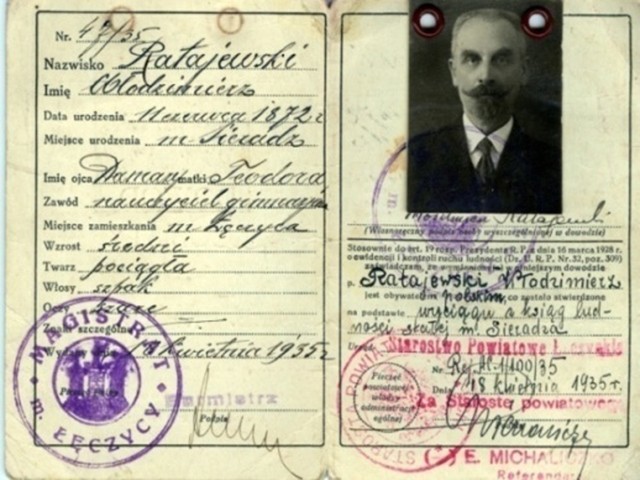 Nr. 47/35
Nazwisko Ratajewski
Imię Włodzimierz
Data urodzenia 11 czerwca 1872 r
Miejsce urodzenia m. Sieradz
Imię ojca Damian matki Teodora
Zawód nauczyciel gimnazjum
Miejsce zamieszkania m. Łęczyca
Wzrost średni
Twarz pociągła
Włosy szpak
Oczy
Znaki szczególne
kwietnia 1935 r
MAGISTRAT
m. ŁĘCZYCY
Burmistrz
Podpis
(Własnoręczny podpis osoby wyszczególnionej w dowodzie)
Stosownie do art. 19 rozp. Prezydenta R. P. z dnia 16 marca 1928 r.
o ewidencji i kontroli ruchu ludności (Dz. U. R. P. Nr. 32, poz. 309)
zaświadczam, że wymieniony w niniejszym dowodzie
p. Ratajewski Włodzimierz
jest obywatelem polskim, co zostało stwierdzone
na podstawie wyciągu z ksiąg lud-
ności stałej m. Sieradza
Urząd Starostwo Powiatowe
Nr. 1/100/35
Pieczęć
powiatowej
władzy
administracji
ogólnej
Dnia 18 kwietnia 1935 r.
Za Starostę powiatowego
(-) E. MICHALICZKO
Referendarz